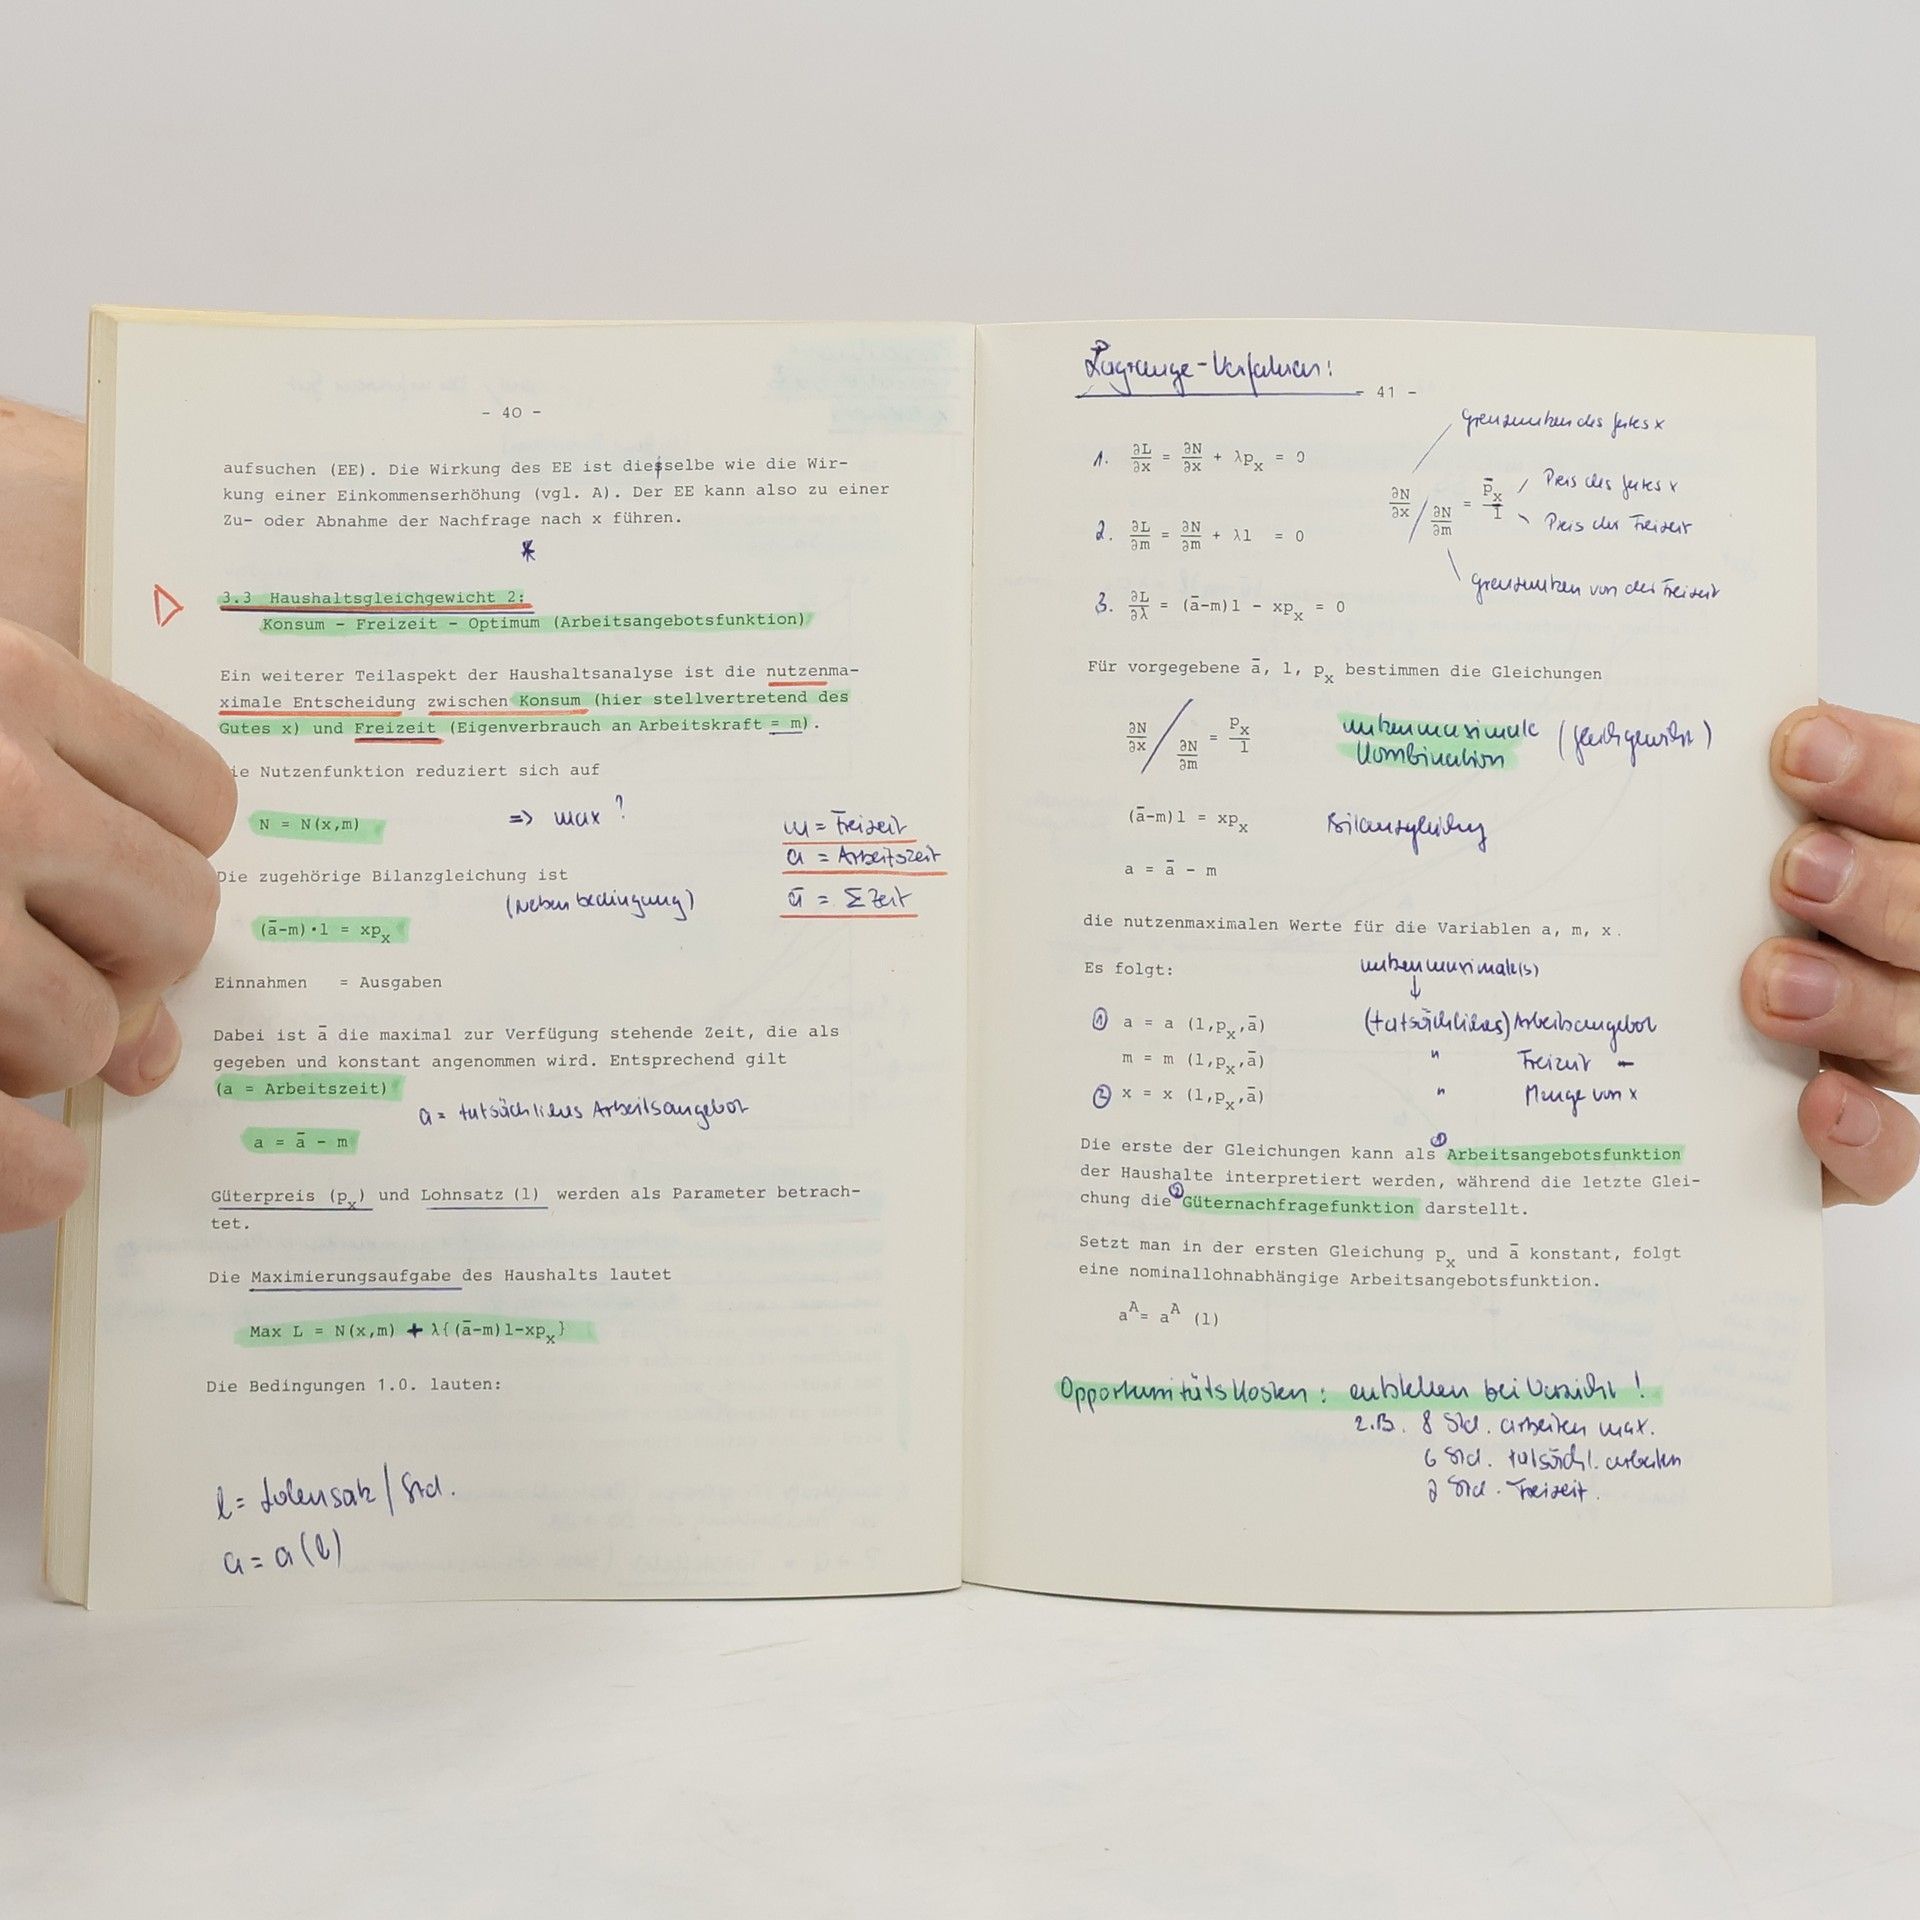 - 40 -
aufsuchen (EE). Die Wirkung des EE ist diesselbe wie die Wir-
kung einer Einkommenserhöhung (vgl. A). Der EE kann also zu einer
Zu- oder Abnahme der Nachfrage nach x führen.
*
3.3 Haushaltsgleichgewicht 2:
Konsum - Freizeit - Optimum (Arbeitsangebotsfunktion)
Ein weiterer Teilaspekt der Haushaltsanalyse ist die nutzenma-
ximale Entscheidung zwischen Konsum (hier stellvertretend des
Gutes x) und Freizeit (Eigenverbrauch an Arbeitskraft = m).
ie Nutzenfunktion reduziert sich auf
N = N(x,m) => max?
m = Freizeit
a = Arbeitszeit
ā = Σ Zeit
Die zugehörige Bilanzgleichung ist
(Nebenbedingung)
(ā-m)·l = xpₓ
Einnahmen = Ausgaben
Dabei ist ā die maximal zur Verfügung stehende Zeit, die als
gegeben und konstant angenommen wird. Entsprechend gilt
(a = Arbeitszeit)
a = tatsächliches Arbeitsangebot
a = ā - m
Güterpreis (pₓ) und Lohnsatz (l) werden als Parameter betrach-
tet.
Die Maximierungsaufgabe des Haushalts lautet
Max L = N(x,m) + λ{(ā-m)l-xpₓ}
Die Bedingungen 1.0. lauten:
l = Lohnsatz / Std.
a = a(l)
Lagrange-Verfahren:
- 41 -
1. ∂L/∂x = ∂N/∂x + λpₓ = 0
2. ∂L/∂m = ∂N/∂m + λl = 0
3. ∂L/∂λ = (ā-m)l - xpₓ = 0
Grenznutzen des Gutes x
∂N/∂x / ∂N/∂m = p̄ₓ/l
Preis des Gutes x
Preis der Freizeit
Grenznutzen von der Freizeit
Für vorgegebene ā, l, pₓ bestimmen die Gleichungen
∂N/∂x / ∂N/∂m = pₓ/l
nutzenmaximale (Gleichgewicht)
Kombination
(ā-m)l = xpₓ Bilanzgleichg
a = ā - m
die nutzenmaximalen Werte für die Variablen a, m, x.
Es folgt: nutzenmaximale(s)
↓
① a = a (l,pₓ,ā) (tatsächliches) Arbeitsangebot
m = m (l,pₓ,ā) " Freizeit -
② x = x (l,pₓ,ā) " Menge von x
Die erste der Gleichungen kann als ① Arbeitsangebotsfunktion
der Haushalte interpretiert werden, während die letzte Glei-
chung die ② Güternachfragefunktion darstellt.
Setzt man in der ersten Gleichung pₓ und ā konstant, folgt
eine nominallohnabhängige Arbeitsangebotsfunktion.
aᴬ= aᴬ (l)
Opportunitätskosten: entstehen bei Verzicht!
z.B. 8 Std. arbeiten max.
6 Std. tatsächl. arbeiten
2 Std. Freizeit.